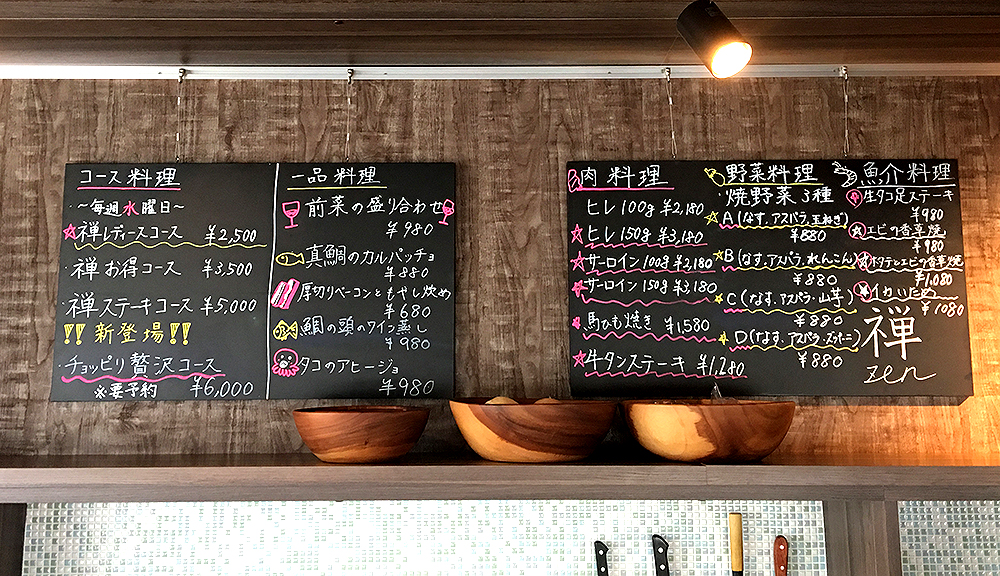 コース料理
～毎週水曜日～
禅レディースコース ¥2,500
・禅お得コース ¥3,500
・禅ステーキコース ¥5,000
!! 新登場 !!
チョッピリ贅沢コース
※要予約 ¥6,000
一品料理
前菜の盛り合わせ
¥980
真鯛のカルパッチョ
¥880
厚切りベーコンともやし炒め
¥680
鯛の頭のワイン蒸し
¥980
タコのアヒージョ
¥980
肉料理
ヒレ100g ¥2,180
ヒレ150g ¥3,180
サーロイン100g ¥2,180
サーロイン150g ¥3,180
馬ひも焼き ¥1,580
牛タンステーキ ¥1,280
野菜料理
焼野菜3種
A(なす、アスパラ、玉ねぎ)
¥880
B(なす、アスパラ、れんこん)
¥880
C(なす、アスパラ、山芋)
¥880
D(なす、アスパラ、ズッキーニ)
¥880
魚介料理
生タコ足ステーキ
¥980
エビの香草焼
¥980
ホタテとエビの香草焼
¥1,080
イカいため
¥1080
禅
zen